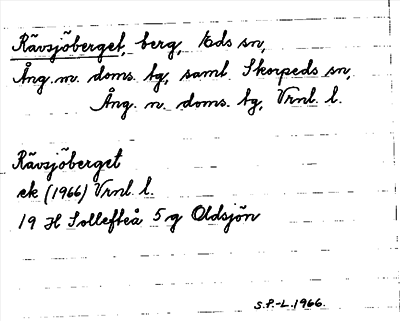 Rävsjöberget, berg, Eds sn,
Ång. m. doms. tg, samt Skorpeds sn,
Ång. n. doms. tg, Vrnl. l.
Rävsjöberget
ek (1966) Vrnl. l.
19 H Sollefteå 5 g Oldsjön
S.P.-L. 1966.